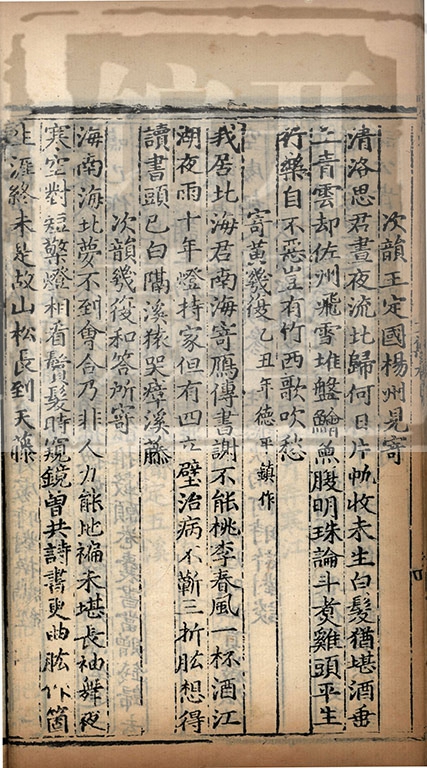 次韻王定國楊州見寄
清洛思君晝夜流北歸何日片帆收未生白髮猶堪酒垂
上青雲却佐州飛雪堆盤鱠魚腹明珠論斗煑雞頭平生
行樂自不惡豈有竹西歌吹愁
寄黃幾復乙丑年德平鎮作
我居北海君南海寄鴈傳書謝不能桃李春風一杯酒江
湖夜雨十年燈持家但有四立壁治病不蘄三折肱想得
讀書頭已白隔溪猿哭瘴溪藤
次韻幾復和答所寄
海南海北夢不到會合乃非人力能地褊未堪長袖舞夜
寒空對短檠燈相看鬢髮時窺鏡曽共詩書更曲肱作箇
生涯終未是故山松長到天藤